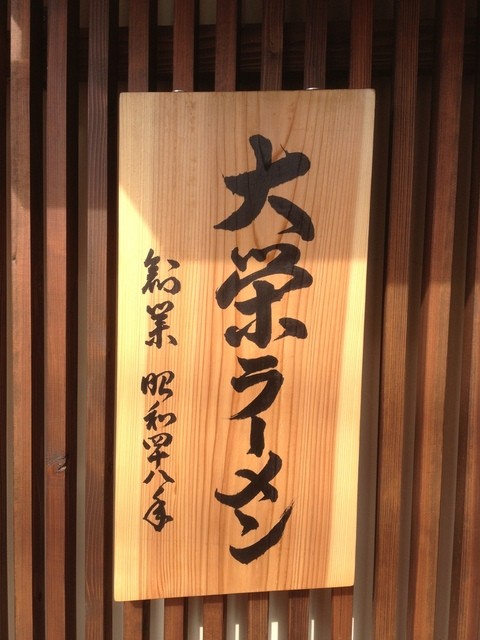 大栄ラーメン
創業 昭和四十八年